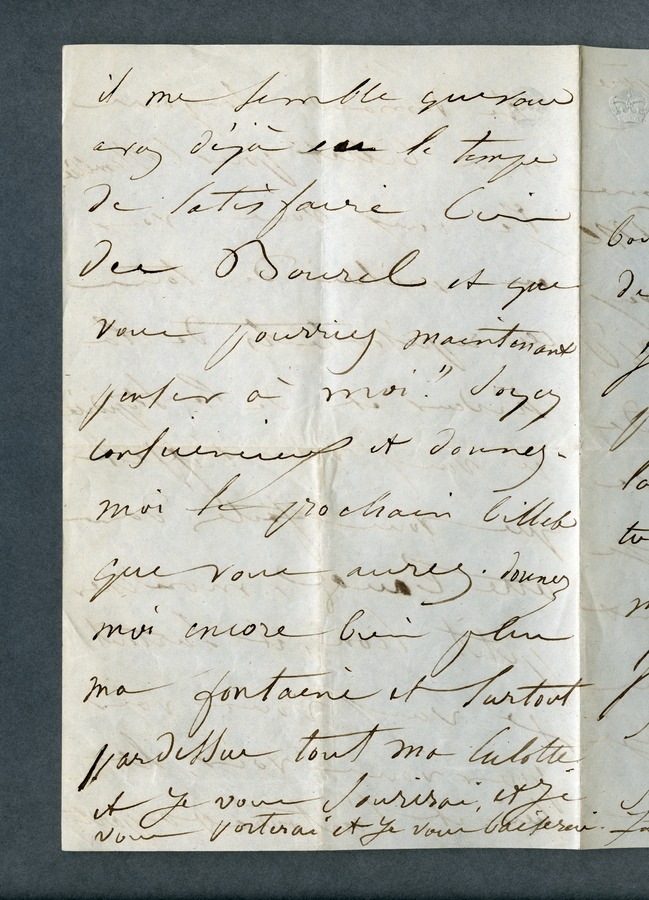 il me semble que vous
avez déjà eu le temps
de satisfaire bien
des Bourel et que
vous pourriez maintenant
penser à moi." Soyez
consciencieux et donnez-
moi le prochain billet
que vous aurez. donnez
moi encore bien plus
ma fontaine et surtout
pardessus tout ma culotte
et je vous sourirai, et je
vous porterai et je vous baiserai.